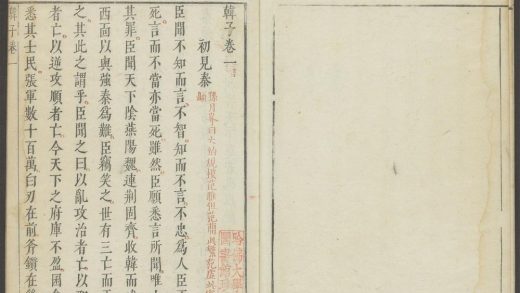 韓子卷一
初見秦
孫月峯曰大約規模范雎但范簡此繁范虛此
臣聞不知而言不智知而不言不忠爲人臣
死言而不當亦當死雖然臣願悉言所聞唯
其罪臣聞天下陰燕陽魏連荆固齊收韓而
西面以與強秦爲難臣竊笑之世有三亡而
之其此之謂乎臣聞之曰以亂攻治者亡以
者亡以逆攻順者亡今天下之府庫不盈囷
悉其士民張軍數十百萬白刃在前斧鑕在
韓子卷一
哈佛大學